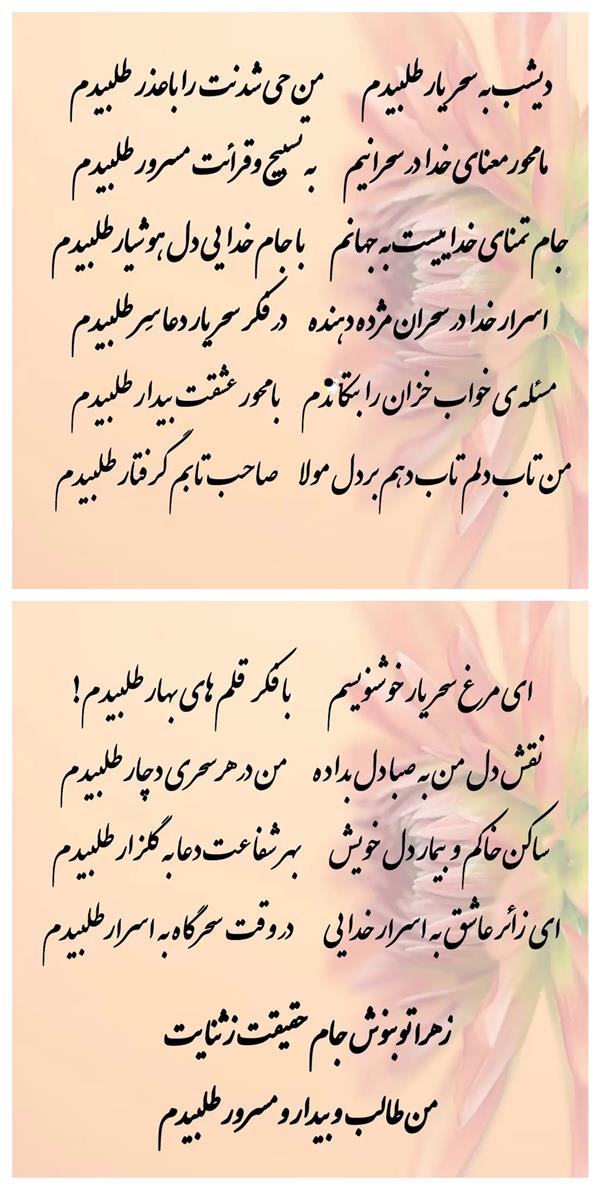 دیشب به سحر یار طلبیدم من حی شدنت را با عذر طلبیدم
ما محور معنای خدا در سحرانیم به تسبیح و قرائت مسرور طلبیدم
جام تمنای خداییست به جهانم با جام خدایی دل هوشیار طلبیدم
اسرار خدا در سحران مژده دهنده در فکر سحر یار دعا سِر طلبیدم
مسئله ی خواب خزان را بتکاندم با محور عشقت بیدار طلبیدم
من تاب دلم تاب دهم بر دل مولا صاحب تابم گرفتار طلبیدم
ای مرغ سحر یار خوشنویسم با فکر قلم های بهار طلبیدم!
نقش دل من به صبا دل بداده من در هر سحری دچار طلبیدم
ساکن خاکم و بیمار دل خویش بهر شفاعت دعا به گلزار طلبیدم
ای زائر عاشق به اسرار خدایی در وقت سحرگاه به اسرار طلبیدم
زهرا تو بنوش جام حقیقت ز ثنایت
من طالب و بیدار و مسرور طلبیدم